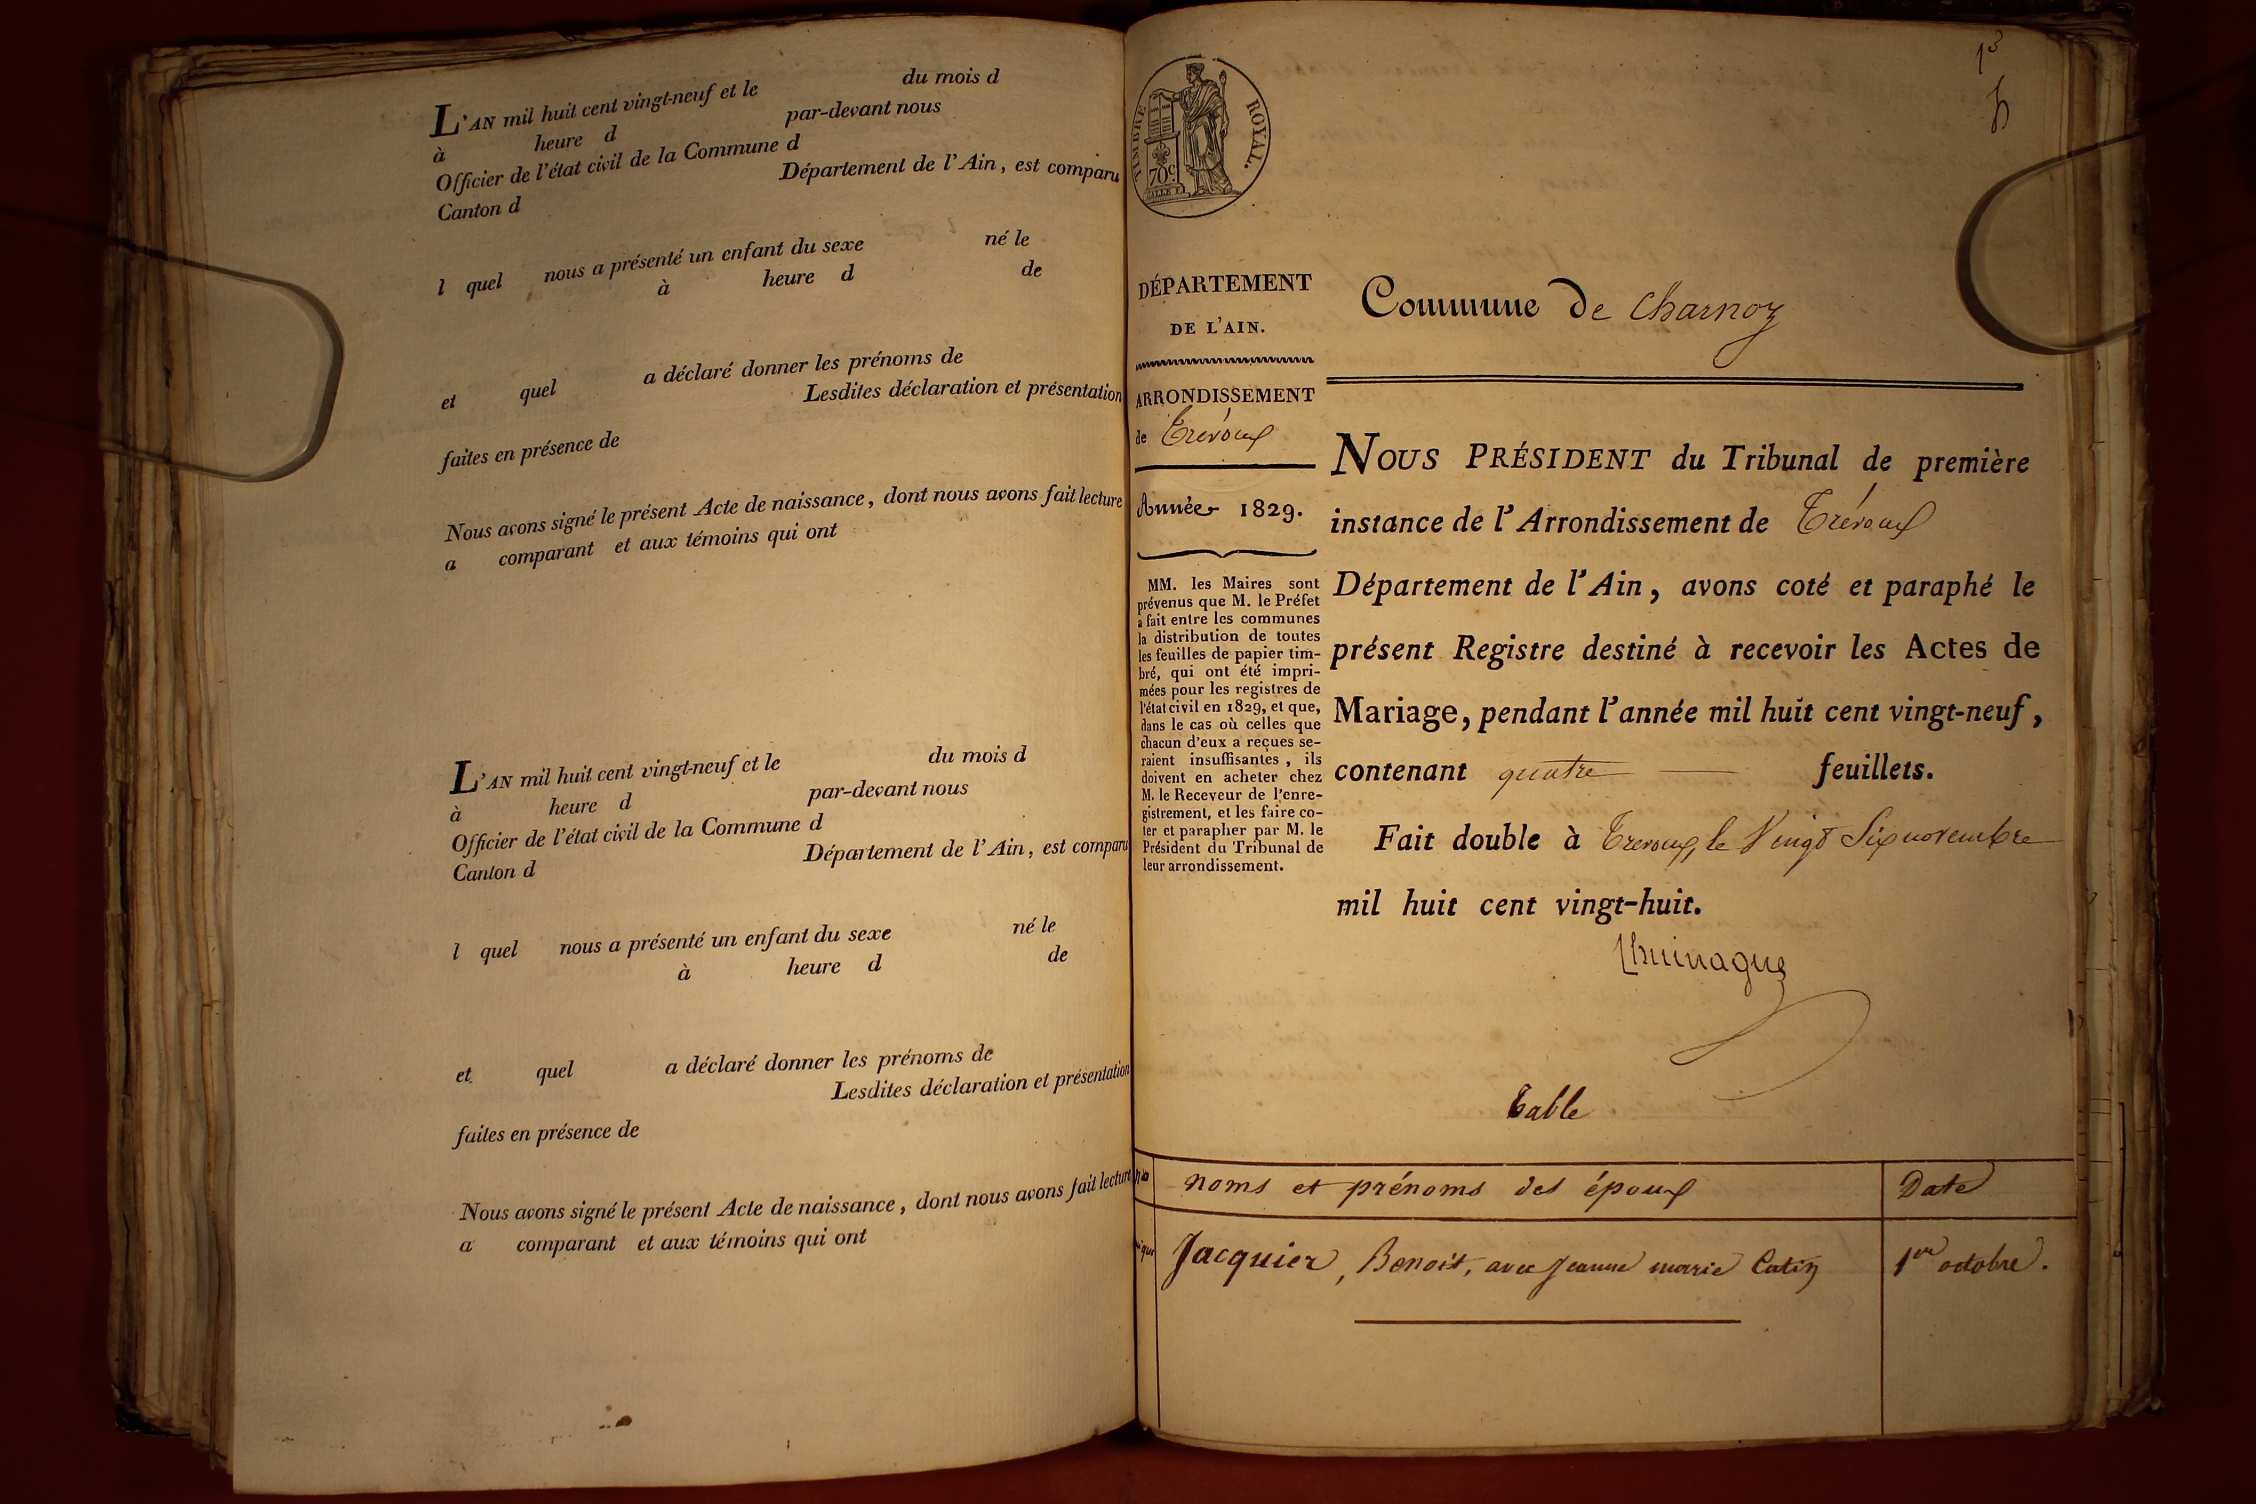 L'AN mil huit cent vingt-neuf et le du mois d
à heure d par-devant nous
Officier de l'état civil de la Commune d
Canton d Département de l'Ain, est comparu
l quel nous a présenté un enfant du sexe né le
à heure d de
et quel a déclaré donner les prénoms de
Lesdites déclaration et présentation
faites en présence de
Nous avons signé le présent Acte de naissance, dont nous avons fait lecture
a comparant et aux témoins qui ont
L'AN mil huit cent vingt-neuf et le du mois d
à heure d par-devant nous
Officier de l'état civil de la Commune d
Canton d Département de l'Ain, est comparu
l quel nous a présenté un enfant du sexe né le
à heure d de
et quel a déclaré donner les prénoms de
Lesdites déclaration et présentation
faites en présence de
Nous avons signé le présent Acte de naissance, dont nous avons fait lecture
a comparant et aux témoins qui ont
TIMBRE ROYAL.
70 c.
DÉPARTEMENT
DE L'AIN.
ARRONDISSEMENT
de Trévoux
Année 1829.
MM. les Maires sont
prévenus que M. le Préfet
a fait entre les communes
la distribution de toutes
les feuilles de papier tim-
bré, qui ont été impri-
mées pour les registres de
l'état civil en 1829, et que,
dans le cas où celles que
chacun d'eux a reçues se-
raient insuffisantes, ils
doivent en acheter chez
M. le Receveur de l'enre-
gistrement, et les faire co-
ter et parapher par M. le
Président du Tribunal de
leur arrondissement.
Commune de Charnoz
NOUS PRÉSIDENT du Tribunal de première
instance de l'Arrondissement de Trévoux
Département de l'Ain, avons coté et paraphé le
présent Registre destiné à recevoir les Actes de
Mariage, pendant l'année mil huit cent vingt-neuf,
contenant quatre feuillets.
Fait double à Trevoux, le Vingt Six novembre
mil huit cent vingt-huit.
Table
Nos noms et prénoms des époux Date
Jacquier, Benoit, avec Jeanne marie Catin 1er octobre.